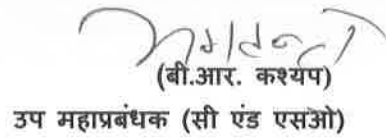 (बी.आर. कश्यप)
उप महाप्रबंधक (सी एंड एसओ)